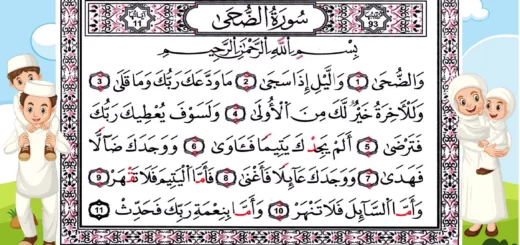 سُورَةُ الضُّحَىٰ
بِسْمِ اللَّهِ الرَّحْمَٰنِ الرَّحِيمِ
وَالضُّحَىٰ ١ وَاللَّيْلِ إِذَا سَجَىٰ ٢ مَا وَدَّعَكَ رَبُّكَ وَمَا قَلَىٰ ٣
وَلَلْآخِرَةُ خَيْرٌ لَّكَ مِنَ الْأُولَىٰ ٤ وَلَسَوْفَ يُعْطِيكَ رَبُّكَ
فَتَرْضَىٰ ٥ أَلَمْ يَجِدْكَ يَتِيمًا فَآوَىٰ ٦ وَوَجَدَكَ ضَآلًّا
فَهَدَىٰ ٧ وَوَجَدَكَ عَآئِلًا فَأَغْنَىٰ ٨ فَأَمَّا الْيَتِيمَ فَلَا تَقْهَرْ ٩
وَأَمَّا السَّآئِلَ فَلَا تَنْهَرْ ١٠ وَأَمَّا بِنِعْمَةِ رَبِّكَ فَحَدِّثْ ١١